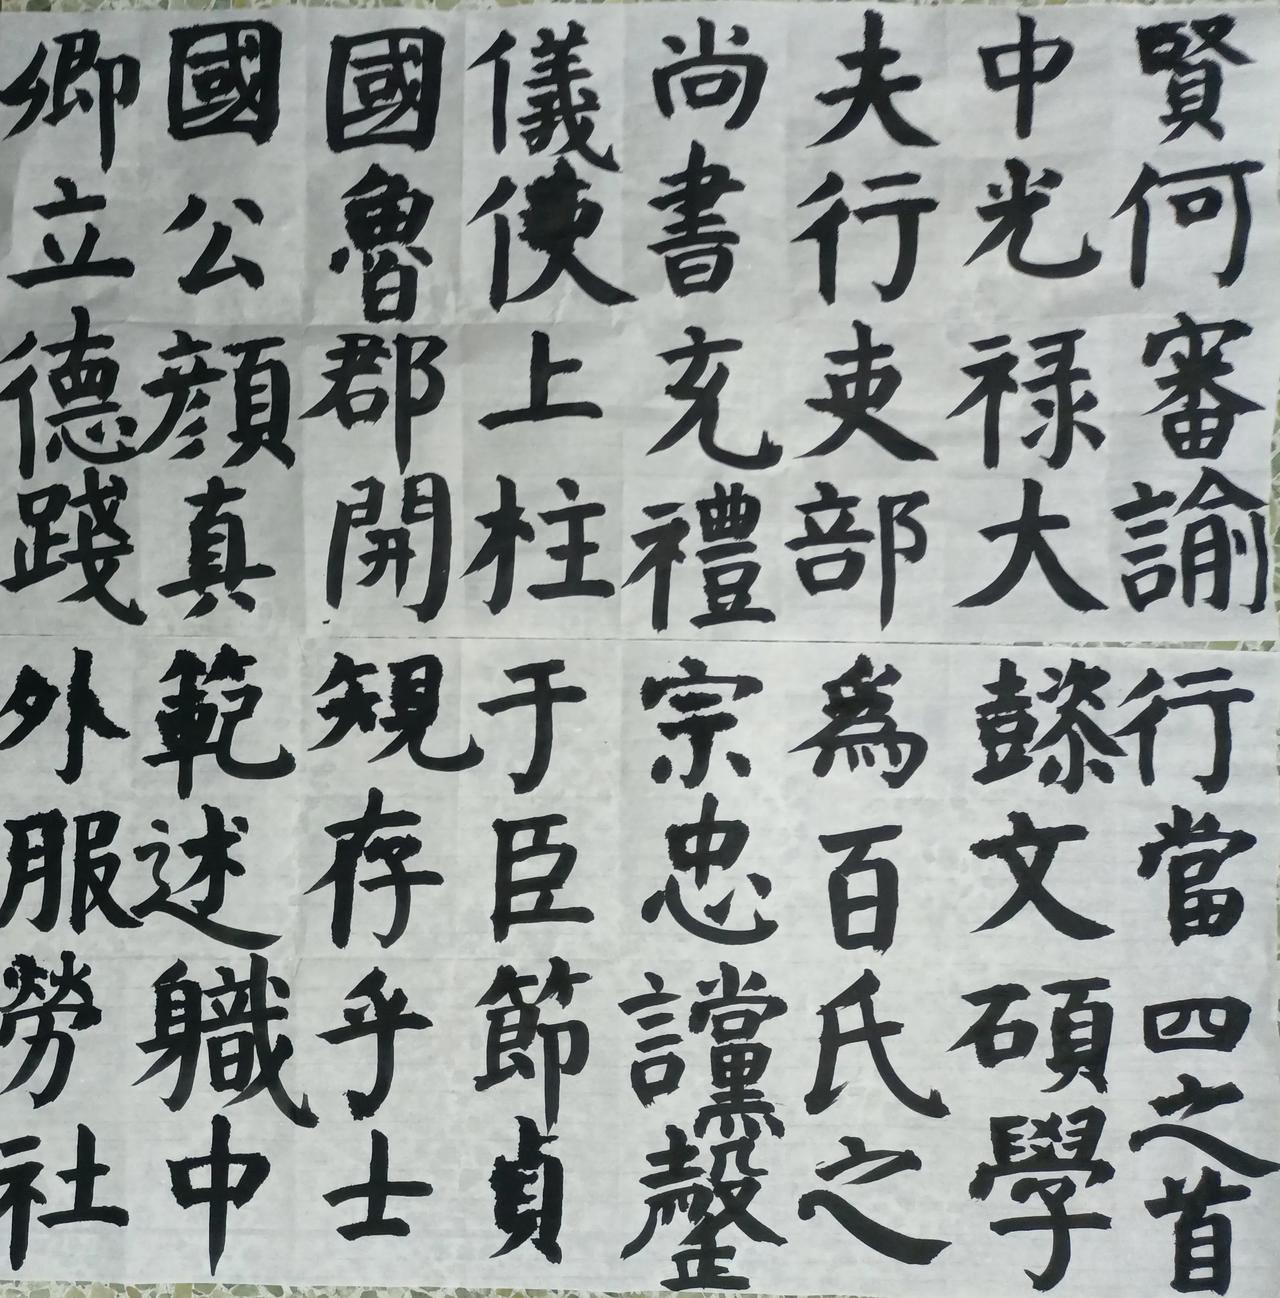 賢何審諭
中光禄大
夫行吏部
尚書充禮
儀使上柱
國魯郡開
國公顔真
卿立德踐
行當四之首
懿文碩學
爲百氏之
宗忠讜罄
于臣節貞
規存乎士
範述職中
外服勞社